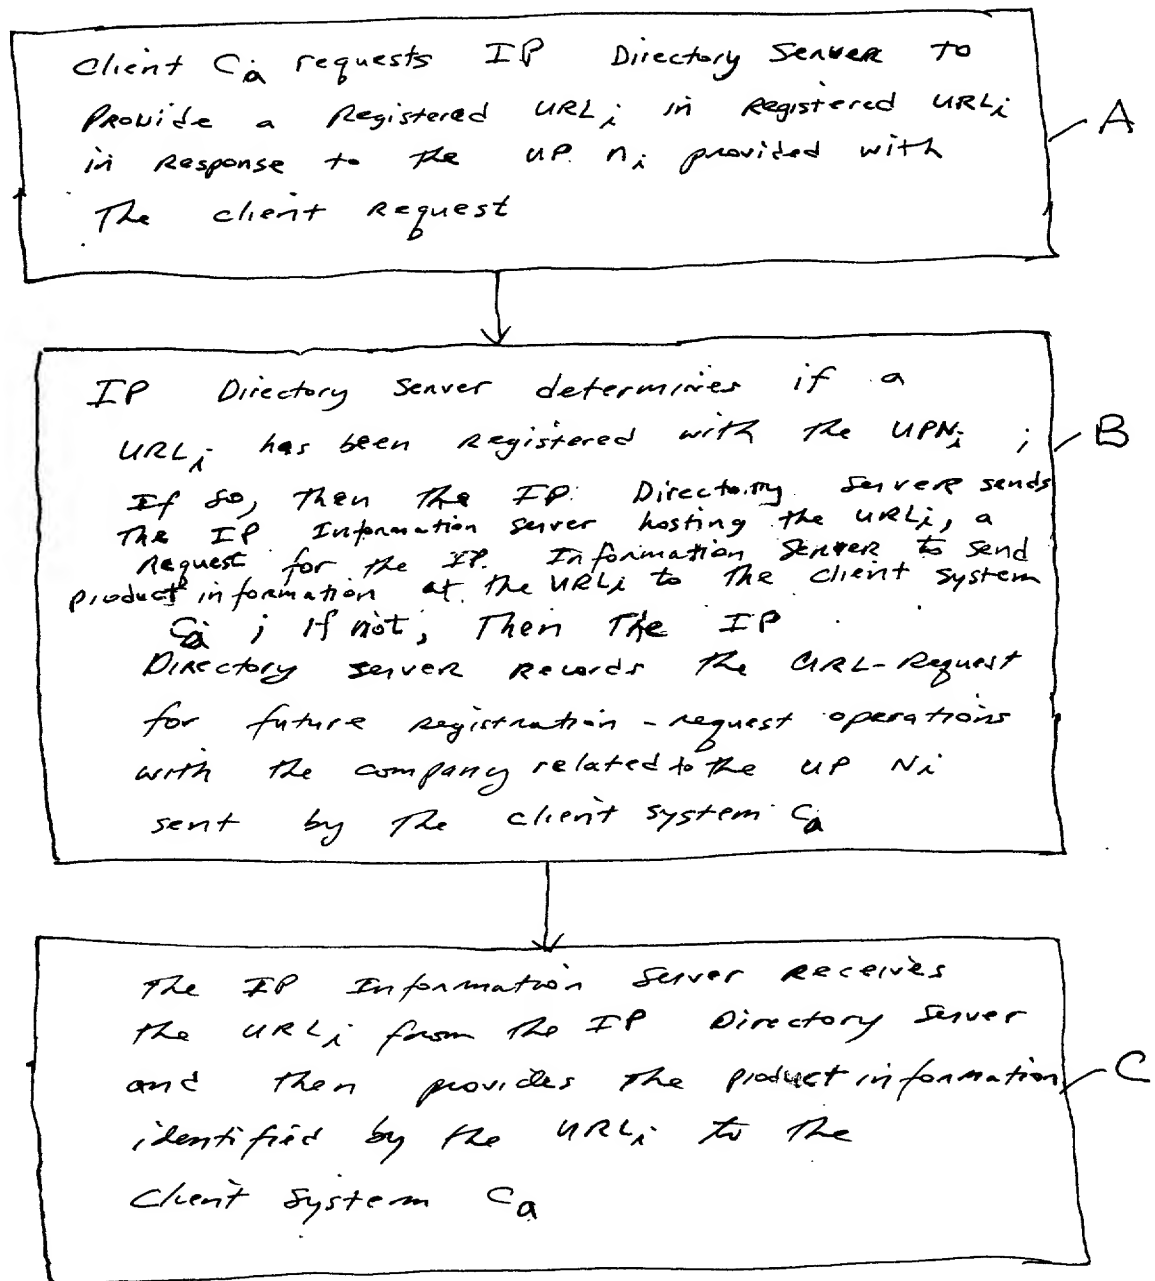 Client Ca requests IP Directory Server to
Provide a Registered URLi in Registered URLi
in Response to the UP ni provided with
The client Request
A
IP Directory Server determines if a
URLi has been Registered with the UPNi ;
If so, then the IP Directory Server sends
The IP Information Server hosting the URLi, a
Request for the IP Information Server to send
product information at the URLi to the client system
Ca ; if not, Then The IP
Directory server Records the URL-Request
for future registration-request operations
with the company related to the UP Ni
sent by the client system Ca
B
The IP Information Server Receives
the URLi from the IP Directory Server
and then provides the product information
identified by the URLi to the
Client System Ca
C